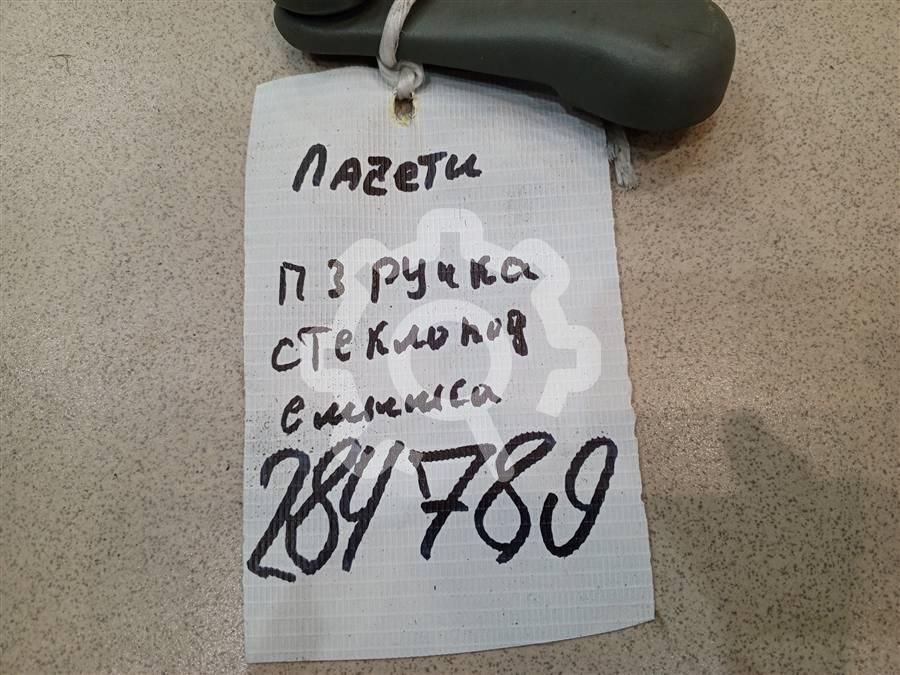 Лачети
ПЗ ручка
стеклопод
емника
284789